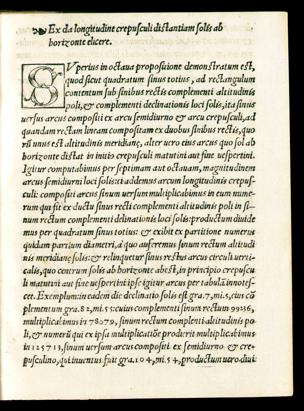 Ex da longitudine crepusculi distantiam solis ab
horizonte elicere.
SVperius in octaua propositione demonstratum est,
quod sicut quadratum sinus totius, ad rectangulum
contentum sub sinibus rectis complementi altitudinis
poli, & complementi declinationis loci solis, ita sinus
uersus arcus compositi ex arcu semidiurno & arcu crepusculi, ad
quandam rectam lineam compositam ex duobus sinibus rectis, quo
rũ unus est altitudinis meridianæ, alter uero eius arcus quo sol ab
horizonte distat in initio crepusculi matutini aut fine uespertini.
Igitur computabimus per septimam aut octauam, magnitudinem
arcus semidiurni loci solis: et addemus arcum longitudinis crepus-
culi: compositi arcus sinum uersum multiplicabimus in eum nume-
rum qui fit ex ductu sinus recti complementi altitudinis poli in si-
num rectum complementi delinationis loci solis: productum diuide
mus per quadratum sinus totius: & exibit ex partitione numerus
quidam partium diametri, à quo auferemus sinum rectum altitudi
nis meridianæ solis: & relinquetur sinus rectus arcus circuli uerti-
calis, quo centrum solis ab horizonte abest, in principio crepuscu
li matutini aut fine uespertini ipse igitur arcus per tabulã innotes-
cet. Exemplum: in eadem die declinatio solis est gra. 7, mi. 5, eius cõ
plementum gra. 82, mi. 55: cuius complementi sinum rectum 99236,
multiplicauimus in 78079, sinum rectum complementi altitudinis po
li, & numerũ qui ex ipsa multiplicatiõe prodijt multiplicauimus
in 125713, sinum uersum arcus compositi ex semidiurno & cre-
pusculino, qui inuentus fuit gra. 104, mi. 54, productum uero diui